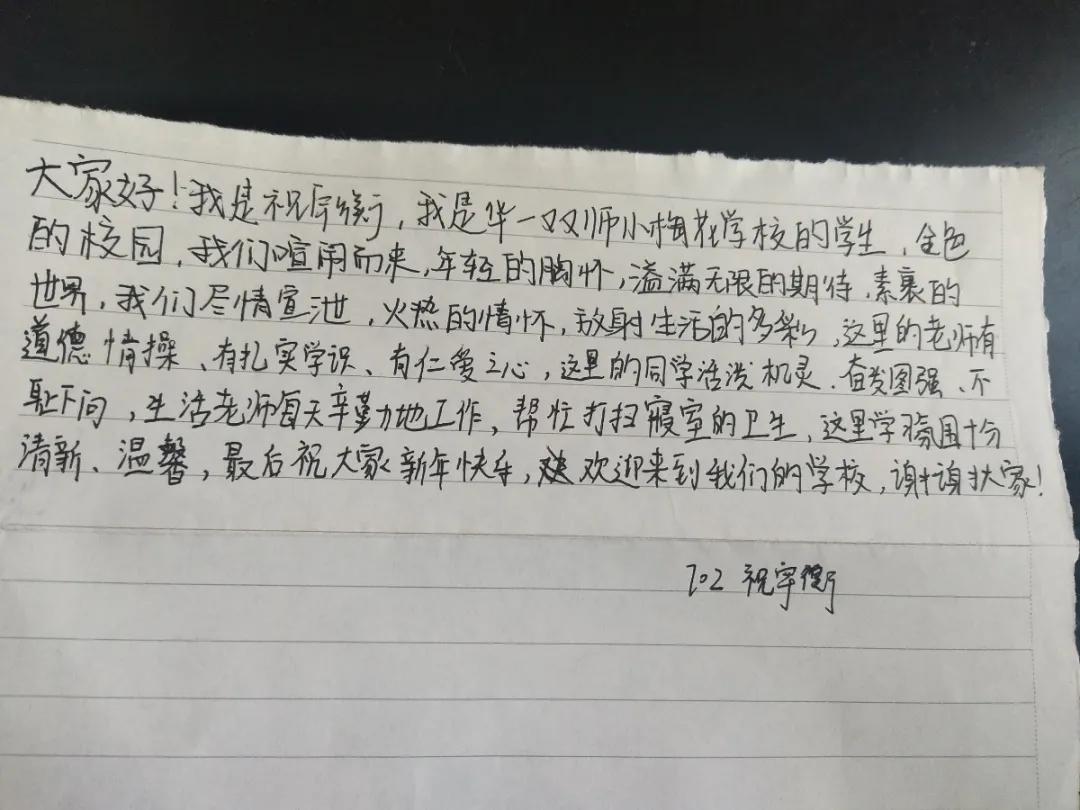 大家好！我是祝宇衡，我是华一双师小梅花学校的学生，金色
的校园，我们喧闹而来，年轻的胸怀，溢满无限的期待，素裹的
世界，我们尽情宣泄，火热的情怀，放射生活的多彩，这里的老师有
道德情操、有扎实学识、有仁爱之心，这里的同学活泼机灵、奋发图强、不
耻下问，生活老师每天辛勤地工作，帮忙打扫寝室的卫生，这里学习氛围十分
清新、温馨，最后祝大家新年快乐，欢迎来到我们的学校，谢谢大家！
702 祝宇衡